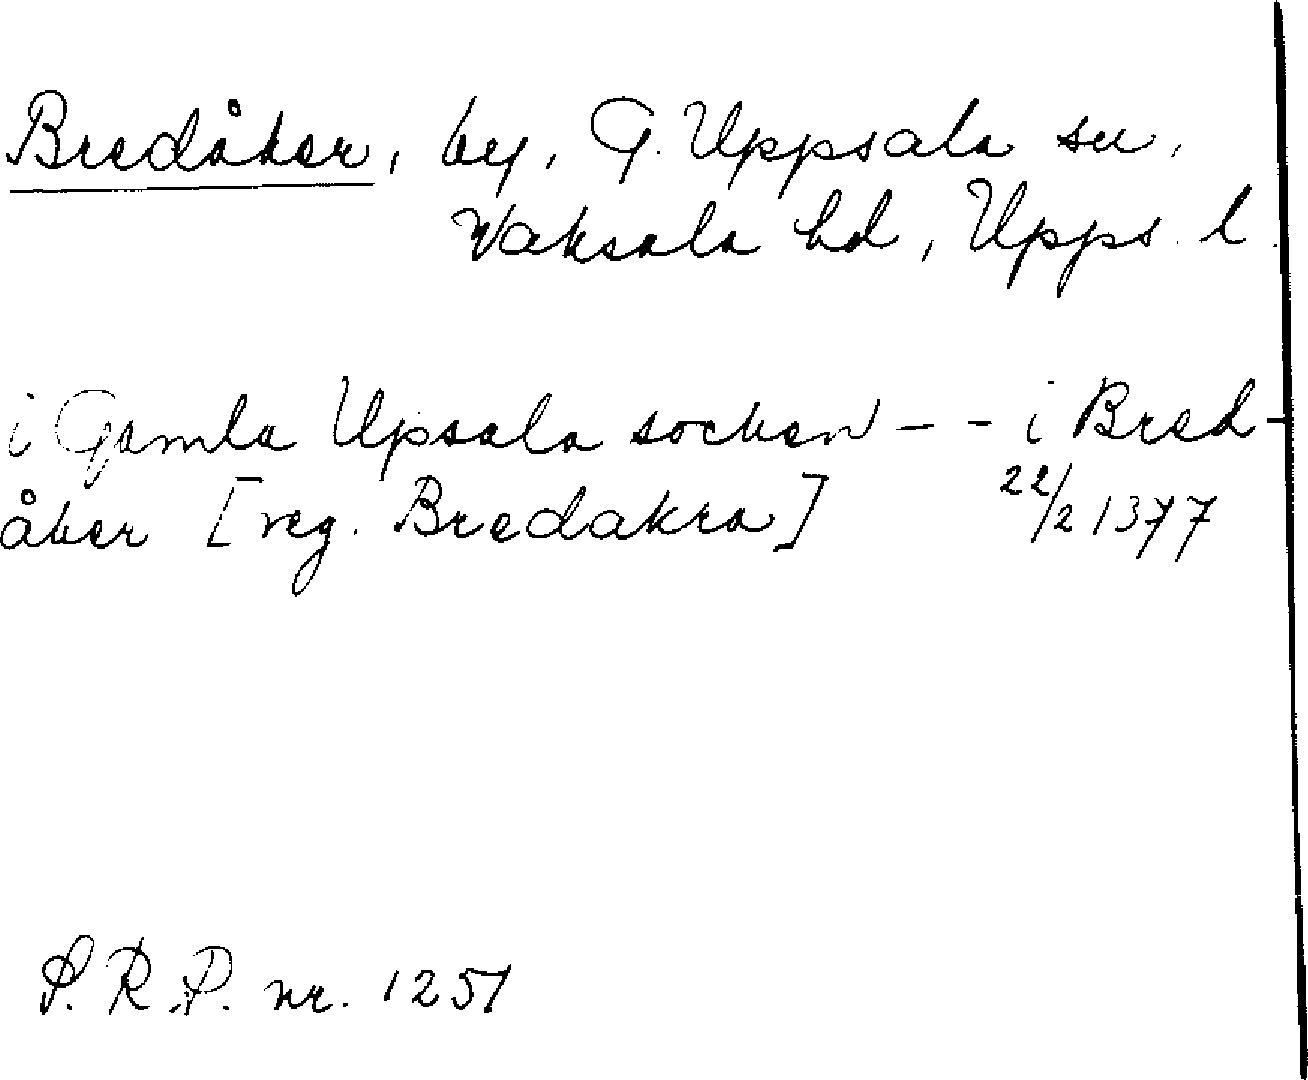 Bredåker, by, G. Uppsala sn,
Vaksala hd, Upps. l.
i Gamla Upsala socken - - i Bred-
åker [reg. Bredakra] 22/2 1377
S.R.P. nr. 1251